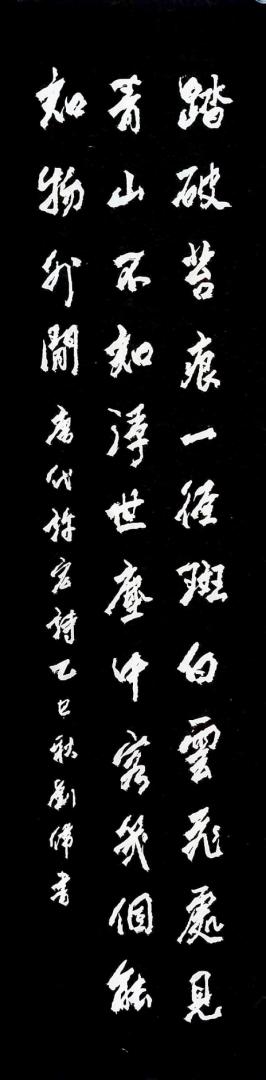 踏破苔痕一徑斑白雲飛處見
青山不知浮世塵中客幾個能
知物外閒 唐代許宏詩乙巳秋劉偉書